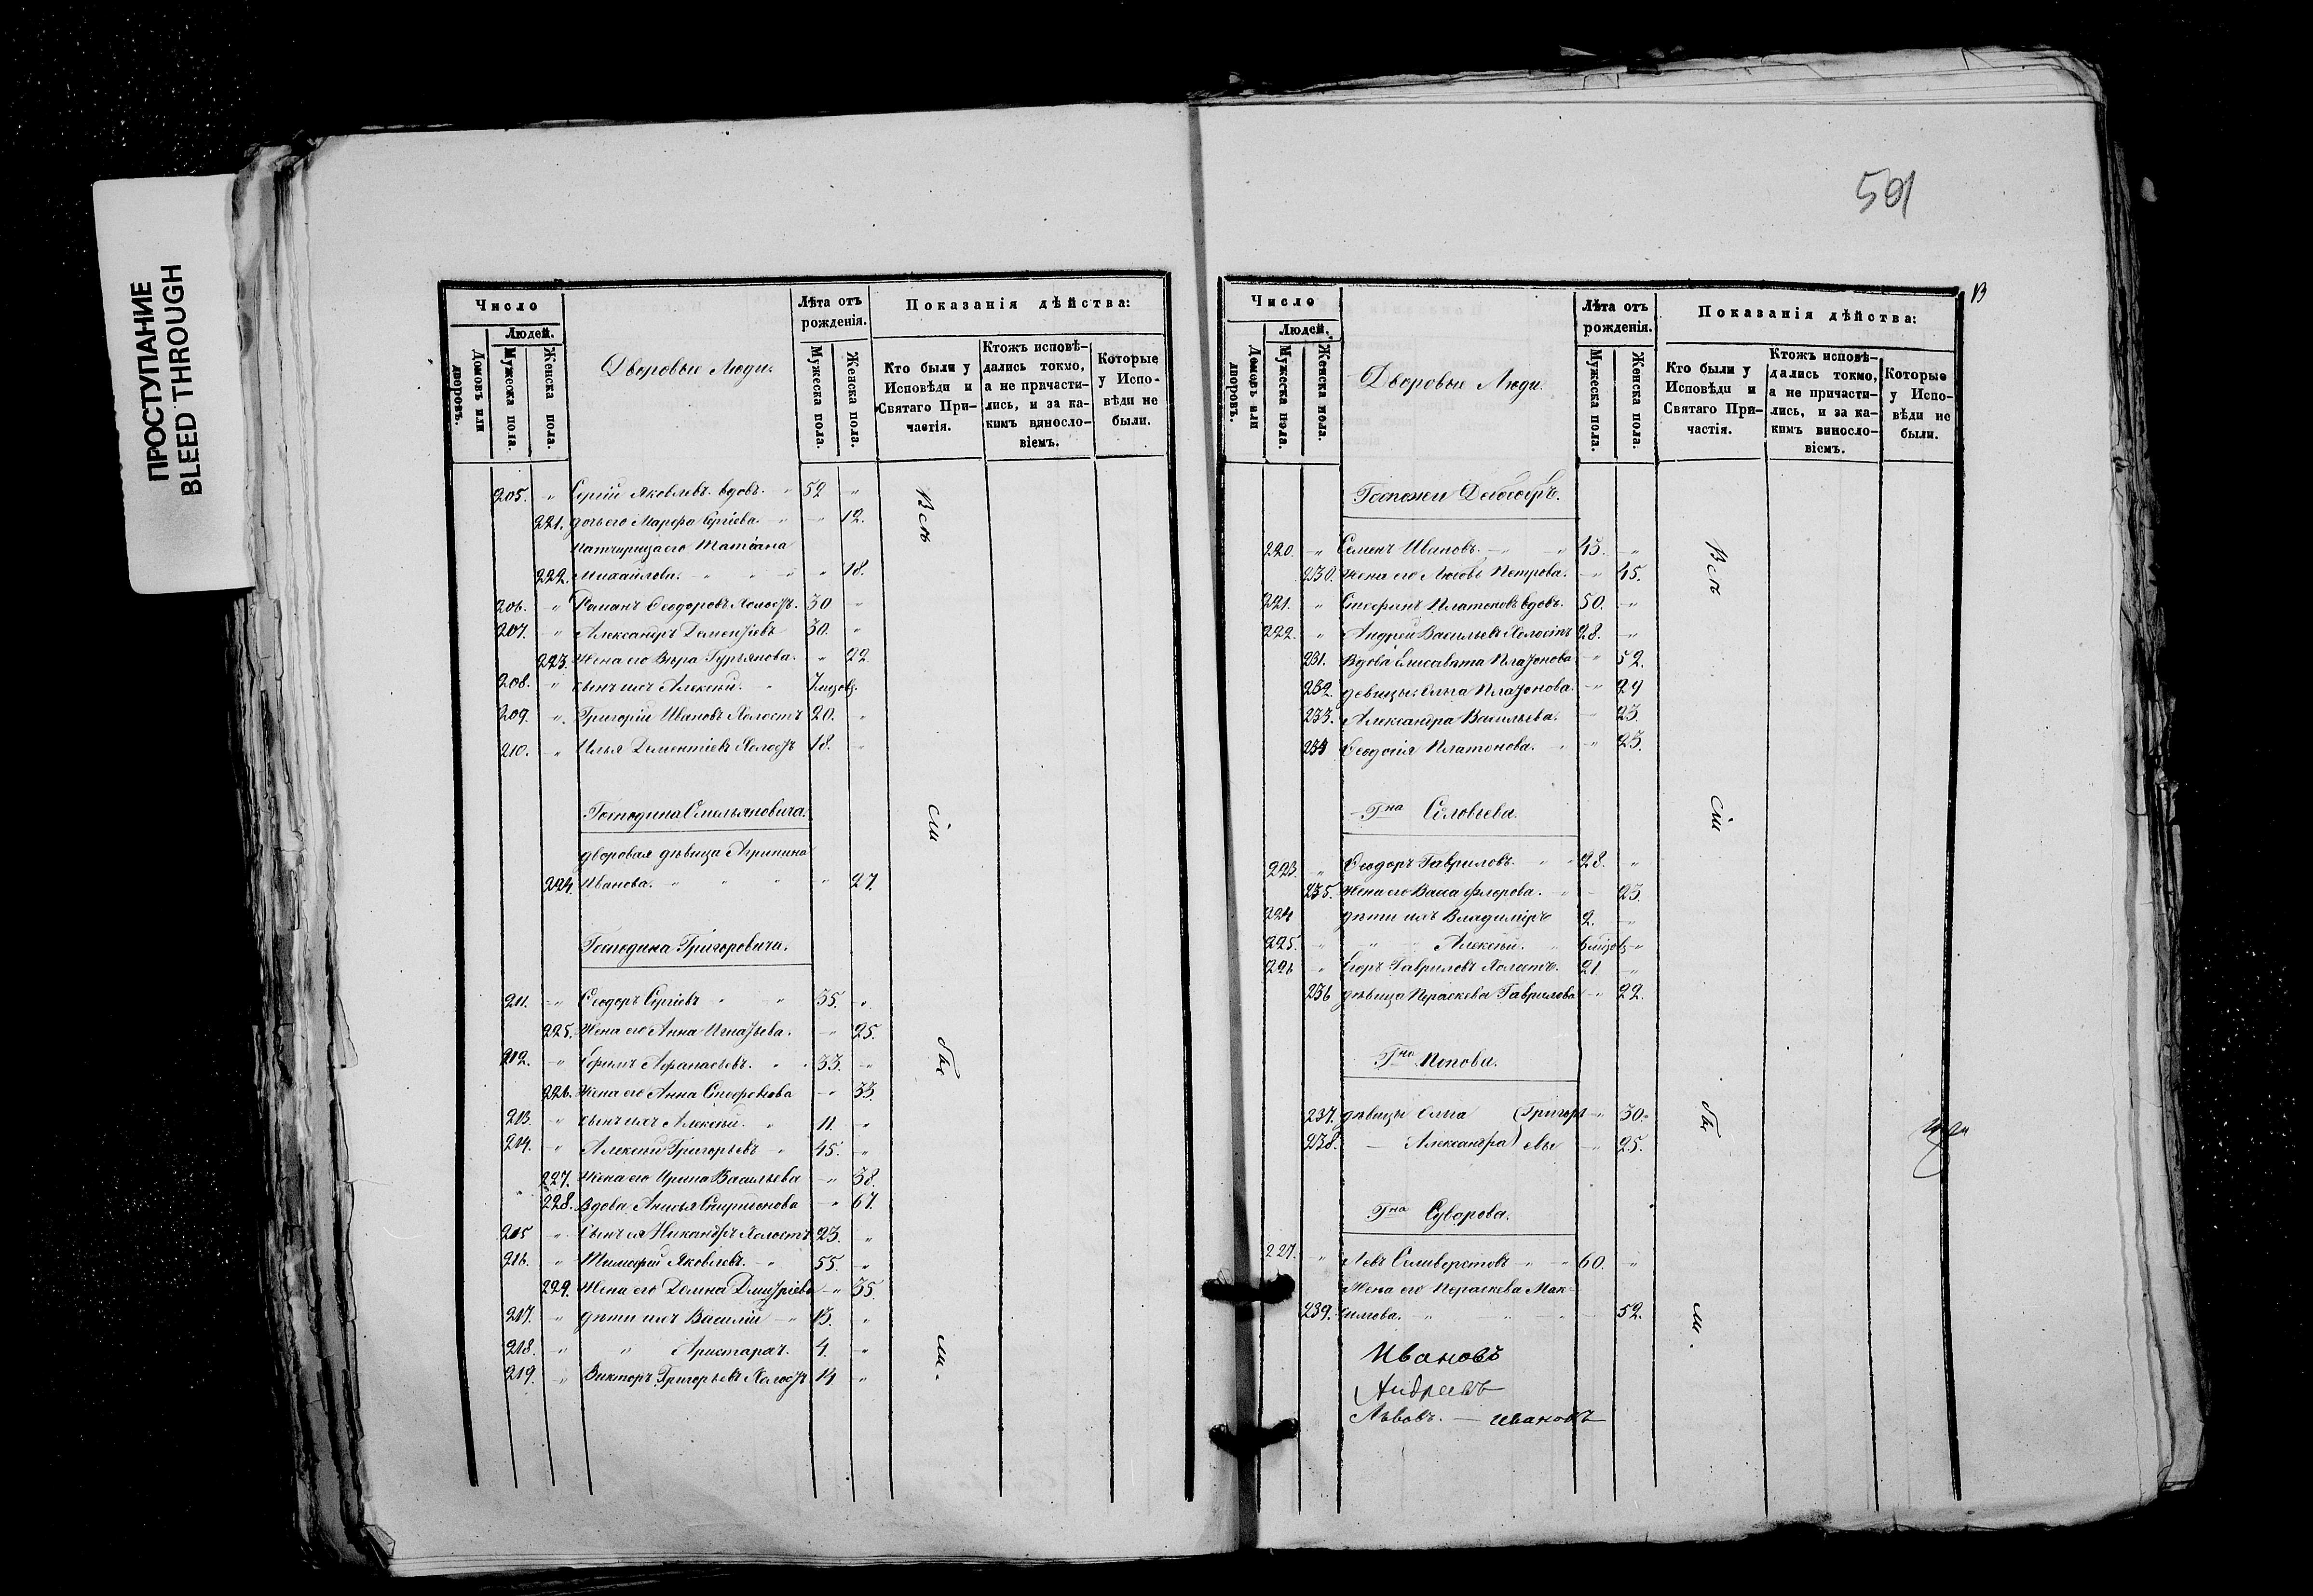 ПРОСТУПАНИЕ
BLEED THROUGH
501
Число
Людей.
Домовъ или дворовъ.
Мужеска пола.
Женска пола.
Дворовые Люди.
Лѣта отъ рожденія.
Мужеска пола.
Женска пола.
Показанія дѣйства:
Кто были у Исповѣди и Святаго Причастія.
Ктожъ исповѣдались токмо, а не причастились, и за какимъ винословіемъ.
Которые у Исповѣди не были.
205. " Сергій Яковлевъ вдовъ. " 52 "
221. дочь его Марфа Сергіева. " " 12.
патчерица его Татіана
222. Михайлова. " " " " 18.
206. " Романъ Ѳеодоровъ Холостъ. 30 "
207. " Александръ Дементіевъ 30. "
223. Жена его Вѣра Гурьянова. " 22.
208. " сынъ ихъ Алексѣй. "
209. " Григорій Ивановъ Холостъ 20. "
210. " Илья Дементіевъ Холостъ 18. "
Господина Омельяновича.
дворовая дѣвица Агрипина
224. Иванова. " " " " 27.
Господина Григоровича.
211. " Ѳеодоръ Сергіевъ " " 35. "
225. Жена его Анна Игнатьева. " 25.
212. " Ефимъ Афанасьевъ. " " 33. "
226. Жена его Анна Стефанова " 33
213. " сынъ ихъ Алексѣй. " 11. "
214. " Алексѣй Григорьевъ " 45. "
227. Жена его Ирина Васильева " 38.
228. Вдова Анисья Спиридонова " 67.
215 " Сынъ ея Никандръ Холостъ 23. "
216. " Тимофей Яковлевъ. " 55. "
229. Жена его Домна Дмитріева " 35.
217. " дѣти ихъ Василій " 13. "
218. " " Аристархъ. 4. "
219. " Викторъ Григорьевъ Холостъ 14 "
Всѣ
сіи
бы
ли.
Число
Людей.
Домовъ или дворовъ.
Мужеска пола.
Женска пола.
Дворовые Люди.
Лѣта отъ рожденія.
Мужеска пола.
Женска пола.
Показанія дѣйства:
Кто были у Исповѣди и Святаго Причастія.
Ктожъ исповѣдались токмо, а не причастились, и за какимъ винословіемъ.
Которые у Исповѣди не были.
Госпожи
220. " Семенъ Ивановъ. " " 43. "
230. Жена его Любовь Петрова. " 45.
221. " Стефанъ Платоновъ вдовъ. 50. "
222. " Андрей Васильевъ Холостъ 28. "
231. Вдова Елисавета Платонова " 52.
232. дѣвицы: Ольга Платонова. " 29
233. Александра Васильева. " 23.
234 Ѳеодосія Платонова. " " 23.
Гна Соловьева.
223. " Ѳеодоръ Гавриловъ. " " 28. "
235. Жена его Васса Флорова. " 23.
224 дѣти ихъ Владиміръ 2. "
225. " " Алексѣй. "
226 " Егоръ Гавриловъ Холостъ. 21 "
236 дѣвица Параскева Гаврилова " 22.
Гна Попова.
237. дѣвицы Ольга (Григорь " 30.
238. — Александра) евы " 25.
Гна Суворова.
227. " Левъ Селиверстовъ " " 60. "
Жена его Параскева Мак-
239. симова. " " " 52.
Ивановъ
Андреевъ
Львовъ. — Ивановъ
Всѣ
сіи
бы
ли.